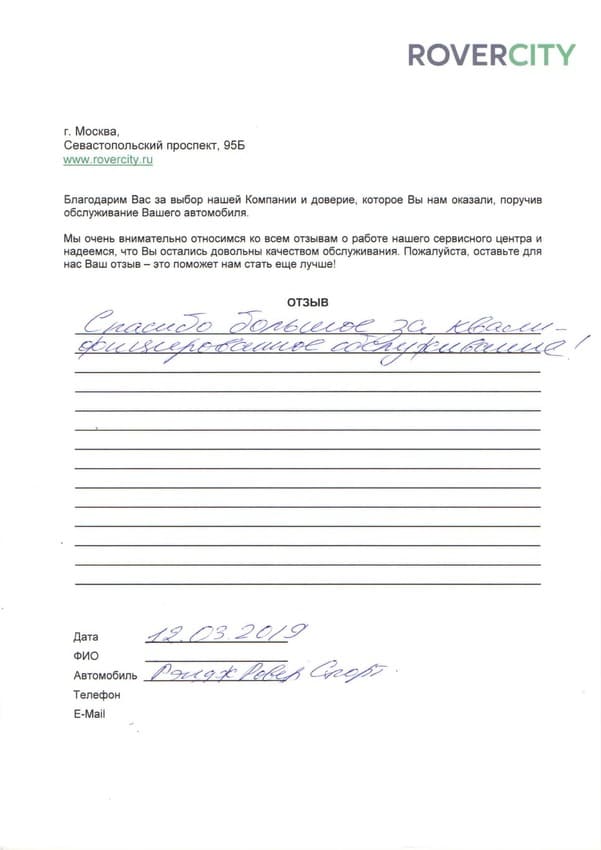 ROVERCITY
г. Москва,
Севастопольский проспект, 95Б
www.rovercity.ru
Благодарим Вас за выбор нашей Компании и доверие, которое Вы нам оказали, поручив
обслуживание Вашего автомобиля.
Мы очень внимательно относимся ко всем отзывам о работе нашего сервисного центра и
надеемся, что Вы остались довольны качеством обслуживания. Пожалуйста, оставьте для
нас Ваш отзыв – это поможет нам стать еще лучше!
ОТЗЫВ
Спасибо большое за квали-
фицированное обслуживание!
Дата 12.03.2019
ФИО
Автомобиль Рэндж Ровер Спорт.
Телефон
E-Mail